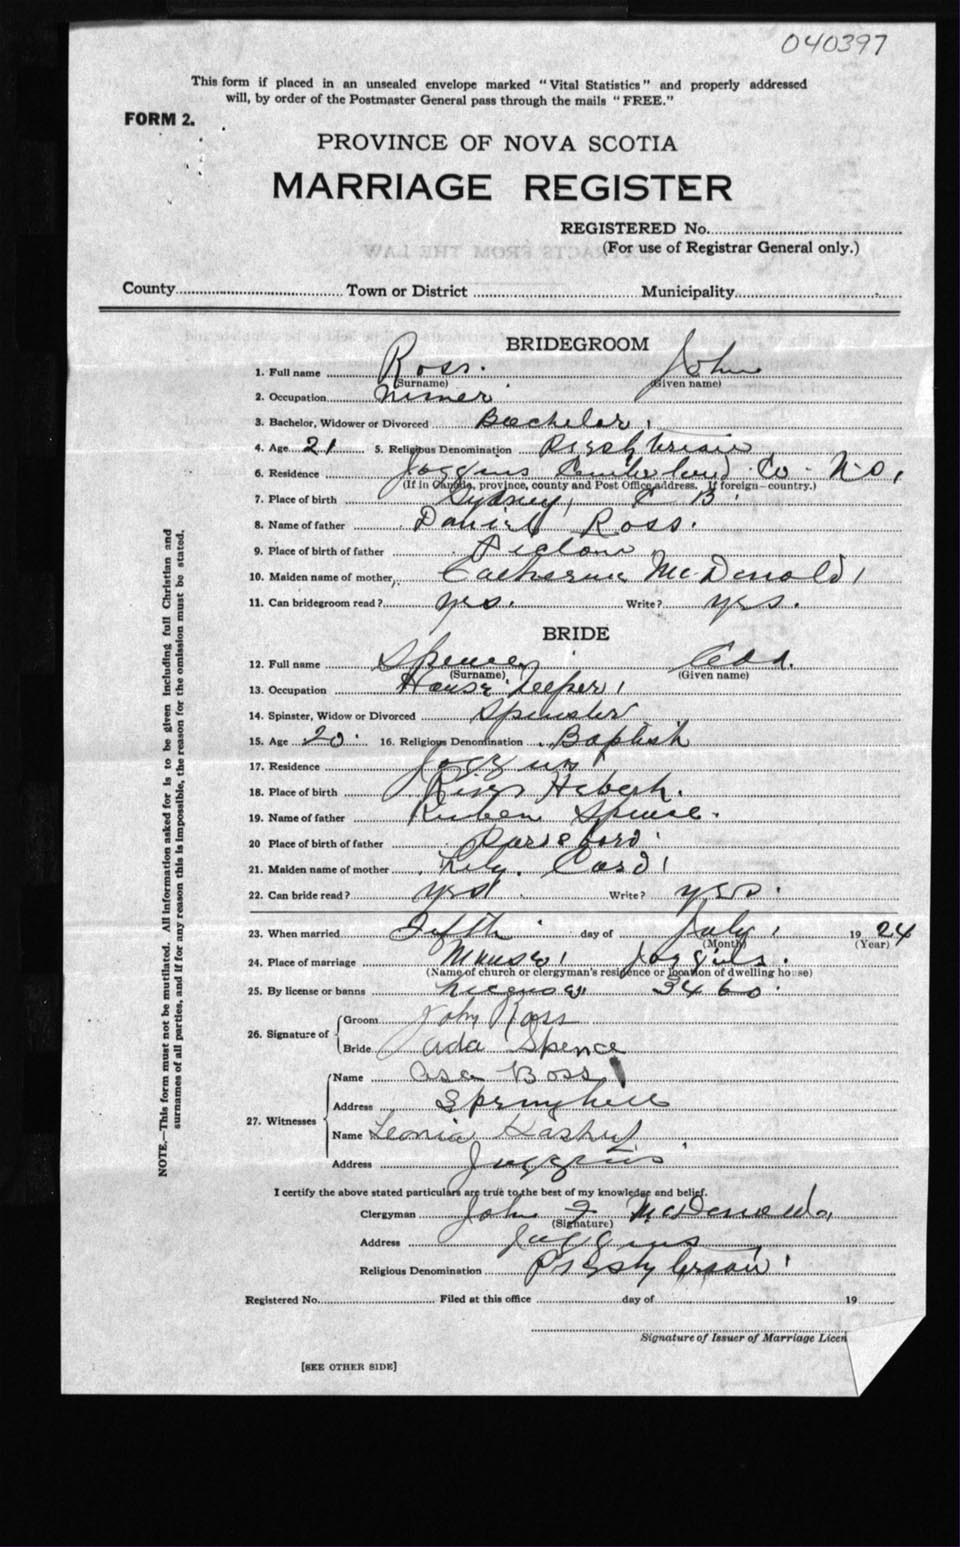 040397
This form if placed in an unsealed envelope marked "Vital Statistics" and properly addressed
will, by order of the Postmaster General pass through the mails "FREE."
FORM 2.
PROVINCE OF NOVA SCOTIA
MARRIAGE REGISTER
REGISTERED No.
(For use of Registrar General only.)
County Town or District Municipality
BRIDEGROOM
1. Full name Ross. John
(Surname) (Given name)
2. Occupation Miner
3. Bachelor, Widower or Divorced Bachelor
4. Age 21 5. Religious Denomination Presbterian
6. Residence Joggins Cumberland Co. N.S.
(If in Canada, province, county and Post Office address. If foreign—country.)
7. Place of birth Sydney, C B.
8. Name of father Daniel Ross.
9. Place of birth of father Pictou
10. Maiden name of mother Catherine McDonald
11. Can bridegroom read? yes. Write? yes.
BRIDE
12. Full name Spence Ada.
(Surname) (Given name)
13. Occupation House keeper
14. Spinster, Widow or Divorced Spinster
15. Age 20 16. Religious Denomination Baptist
17. Residence Joggins
18. Place of birth River Hebert.
19. Name of father Reuben Spence.
20 Place of birth of father Parsboro
21. Maiden name of mother Lily. Card
22. Can bride read? yes Write? yes.
23. When married Fifth day of July 1924
(Month) (Year)
24. Place of marriage Manse Joggins.
(Name of church or clergyman's residence or location of dwelling house)
25. By license or banns License 3460
26. Signature of Groom John Ross
Bride Ada Spence
27. Witnesses Name Asa Boss
Address Springhill
Name Leonia
Address Joggins
I certify the above stated particulars are true to the best of my knowledge and belief.
Clergyman John F McDonald
(Signature)
Address Joggins
Religious Denomination Presbyterian
Registered No. Filed at this office day of 19
Signature of Issuer of Marriage Licen
[SEE OTHER SIDE]
NOTE.—This form must not be mutilated. All information asked for is to be given including full Christian and
surnames of all parties, and if for any reason this is impossible, the reason for the omission must be stated.